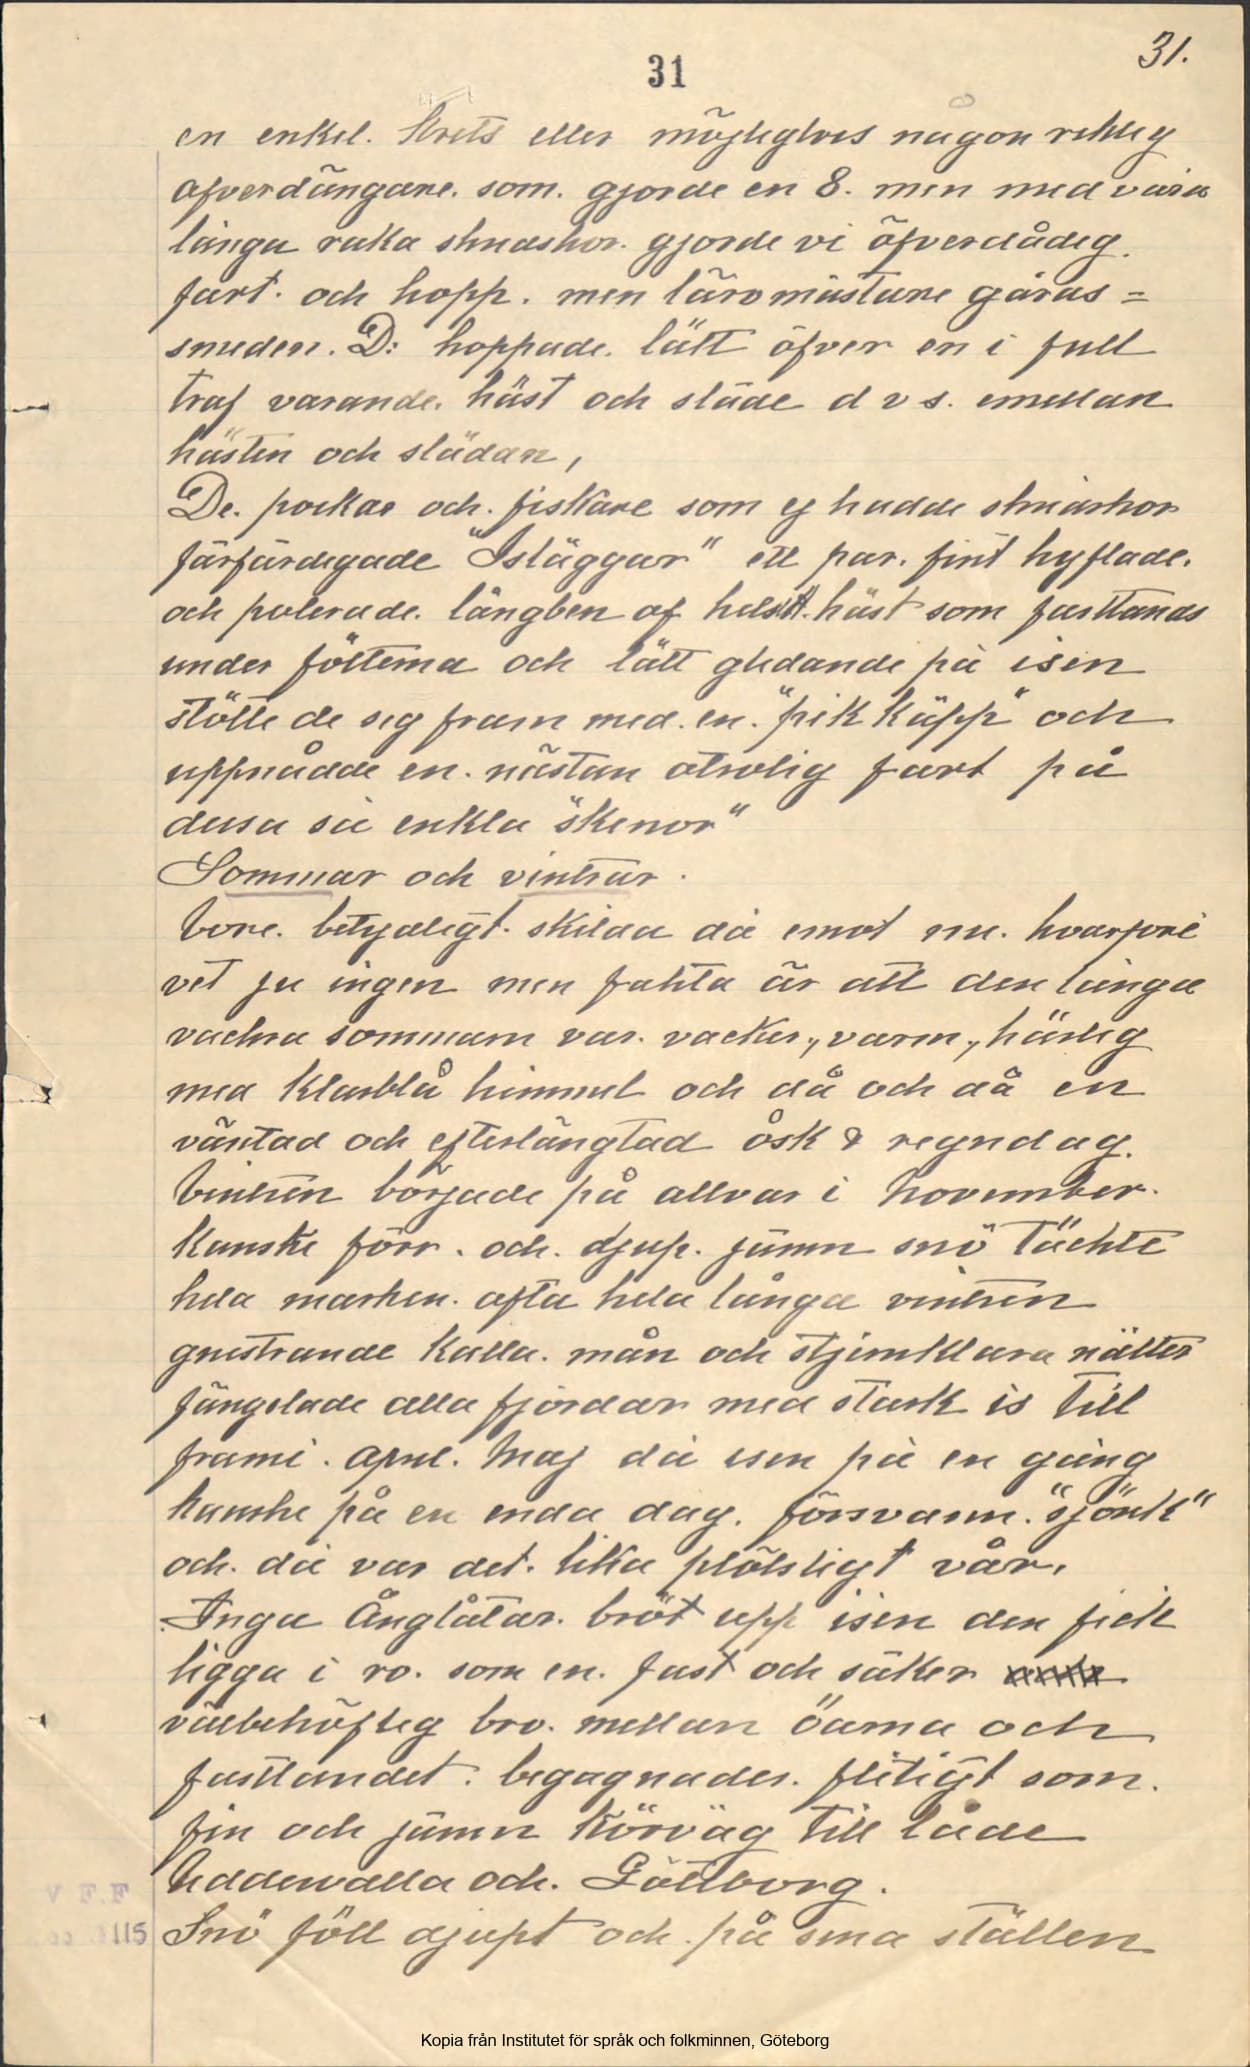 31
31.
en enkel. Krets eller möjligtvis någon riktig
öfverdängare. som. gjorde en 8. men med våra
långa raka skridskor. gjorde vi öfverdådig.
fart. och hopp. men läromästare gårds=
smeden. D: hoppade. lätt öfver en i full
traf varande. häst och släde d v s. emellan
hästen och slädan,
De. pockar och. fiskare som ej hadde skridskor
förfärdigade "Isläggar" ett par. fint hyflade.
och polerade. långben af helst. häst som fastbands
under fötterna och lätt glidande på isen
stötte de sig fram med. en. "pik käpp" och
uppnådde en. nästan otrolig fart på
dessa så enkla "skenor"
Sommar och vintrar.
Vore. betydligt. skilda då emot nu. hvarföre
vet ju ingen men fakta är att den långa
vackra sommarn var. vacker, varm, härlig
med klarblå himmel och då och då en
väntad och efterlängtad åsk & regndag.
Vintern började på allvar i November.
Kanske förr. och. djup. jämn snö täckte
hela marken. ofta hela långa vintern
gnistrande kalla. mån och stjernklara nätter
fängslade alla fjordar med stark is till
fram i. April. Maj då isen på en gång
kanske på en enda dag. försvann. "sjönk"
och. då var det. lika plötsligt vår.
Inga Ångbåtar. bröt upp isen den fick
ligga i ro. som en. fast och säker
välbehöflig bro. mellan öarna och
fastlandet. begagnades. flitigt som.
fin och jämn körväg till både
Uddewalla och. Götteborg.
V F.F
115
Snö föll djupt och. på sina ställen
Kopia från Institutet för språk och folkminnen, Göteborg